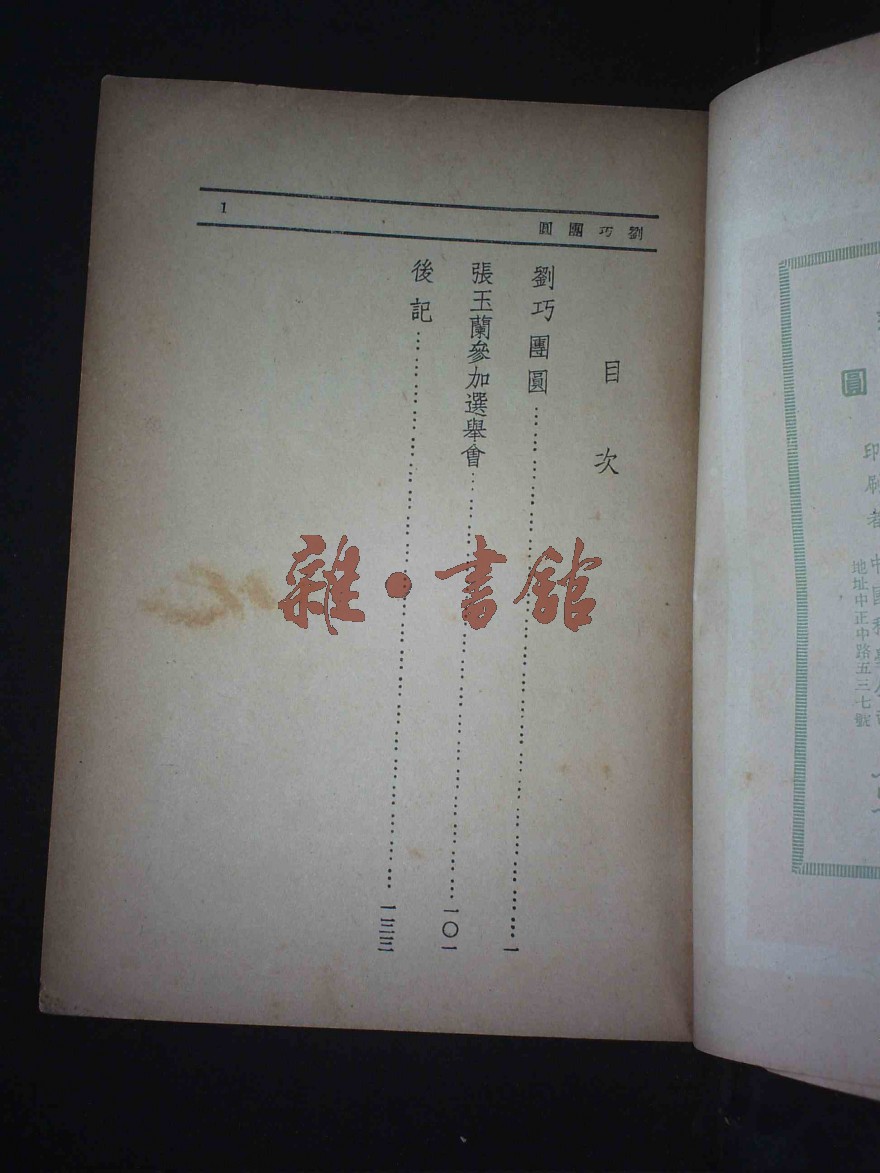 劉巧團圓
1
目次
劉巧團圓……一
張玉蘭參加選舉會……一〇一
後記……一三三
雜·書館
圓
印刷者
地址中正中路五三七號